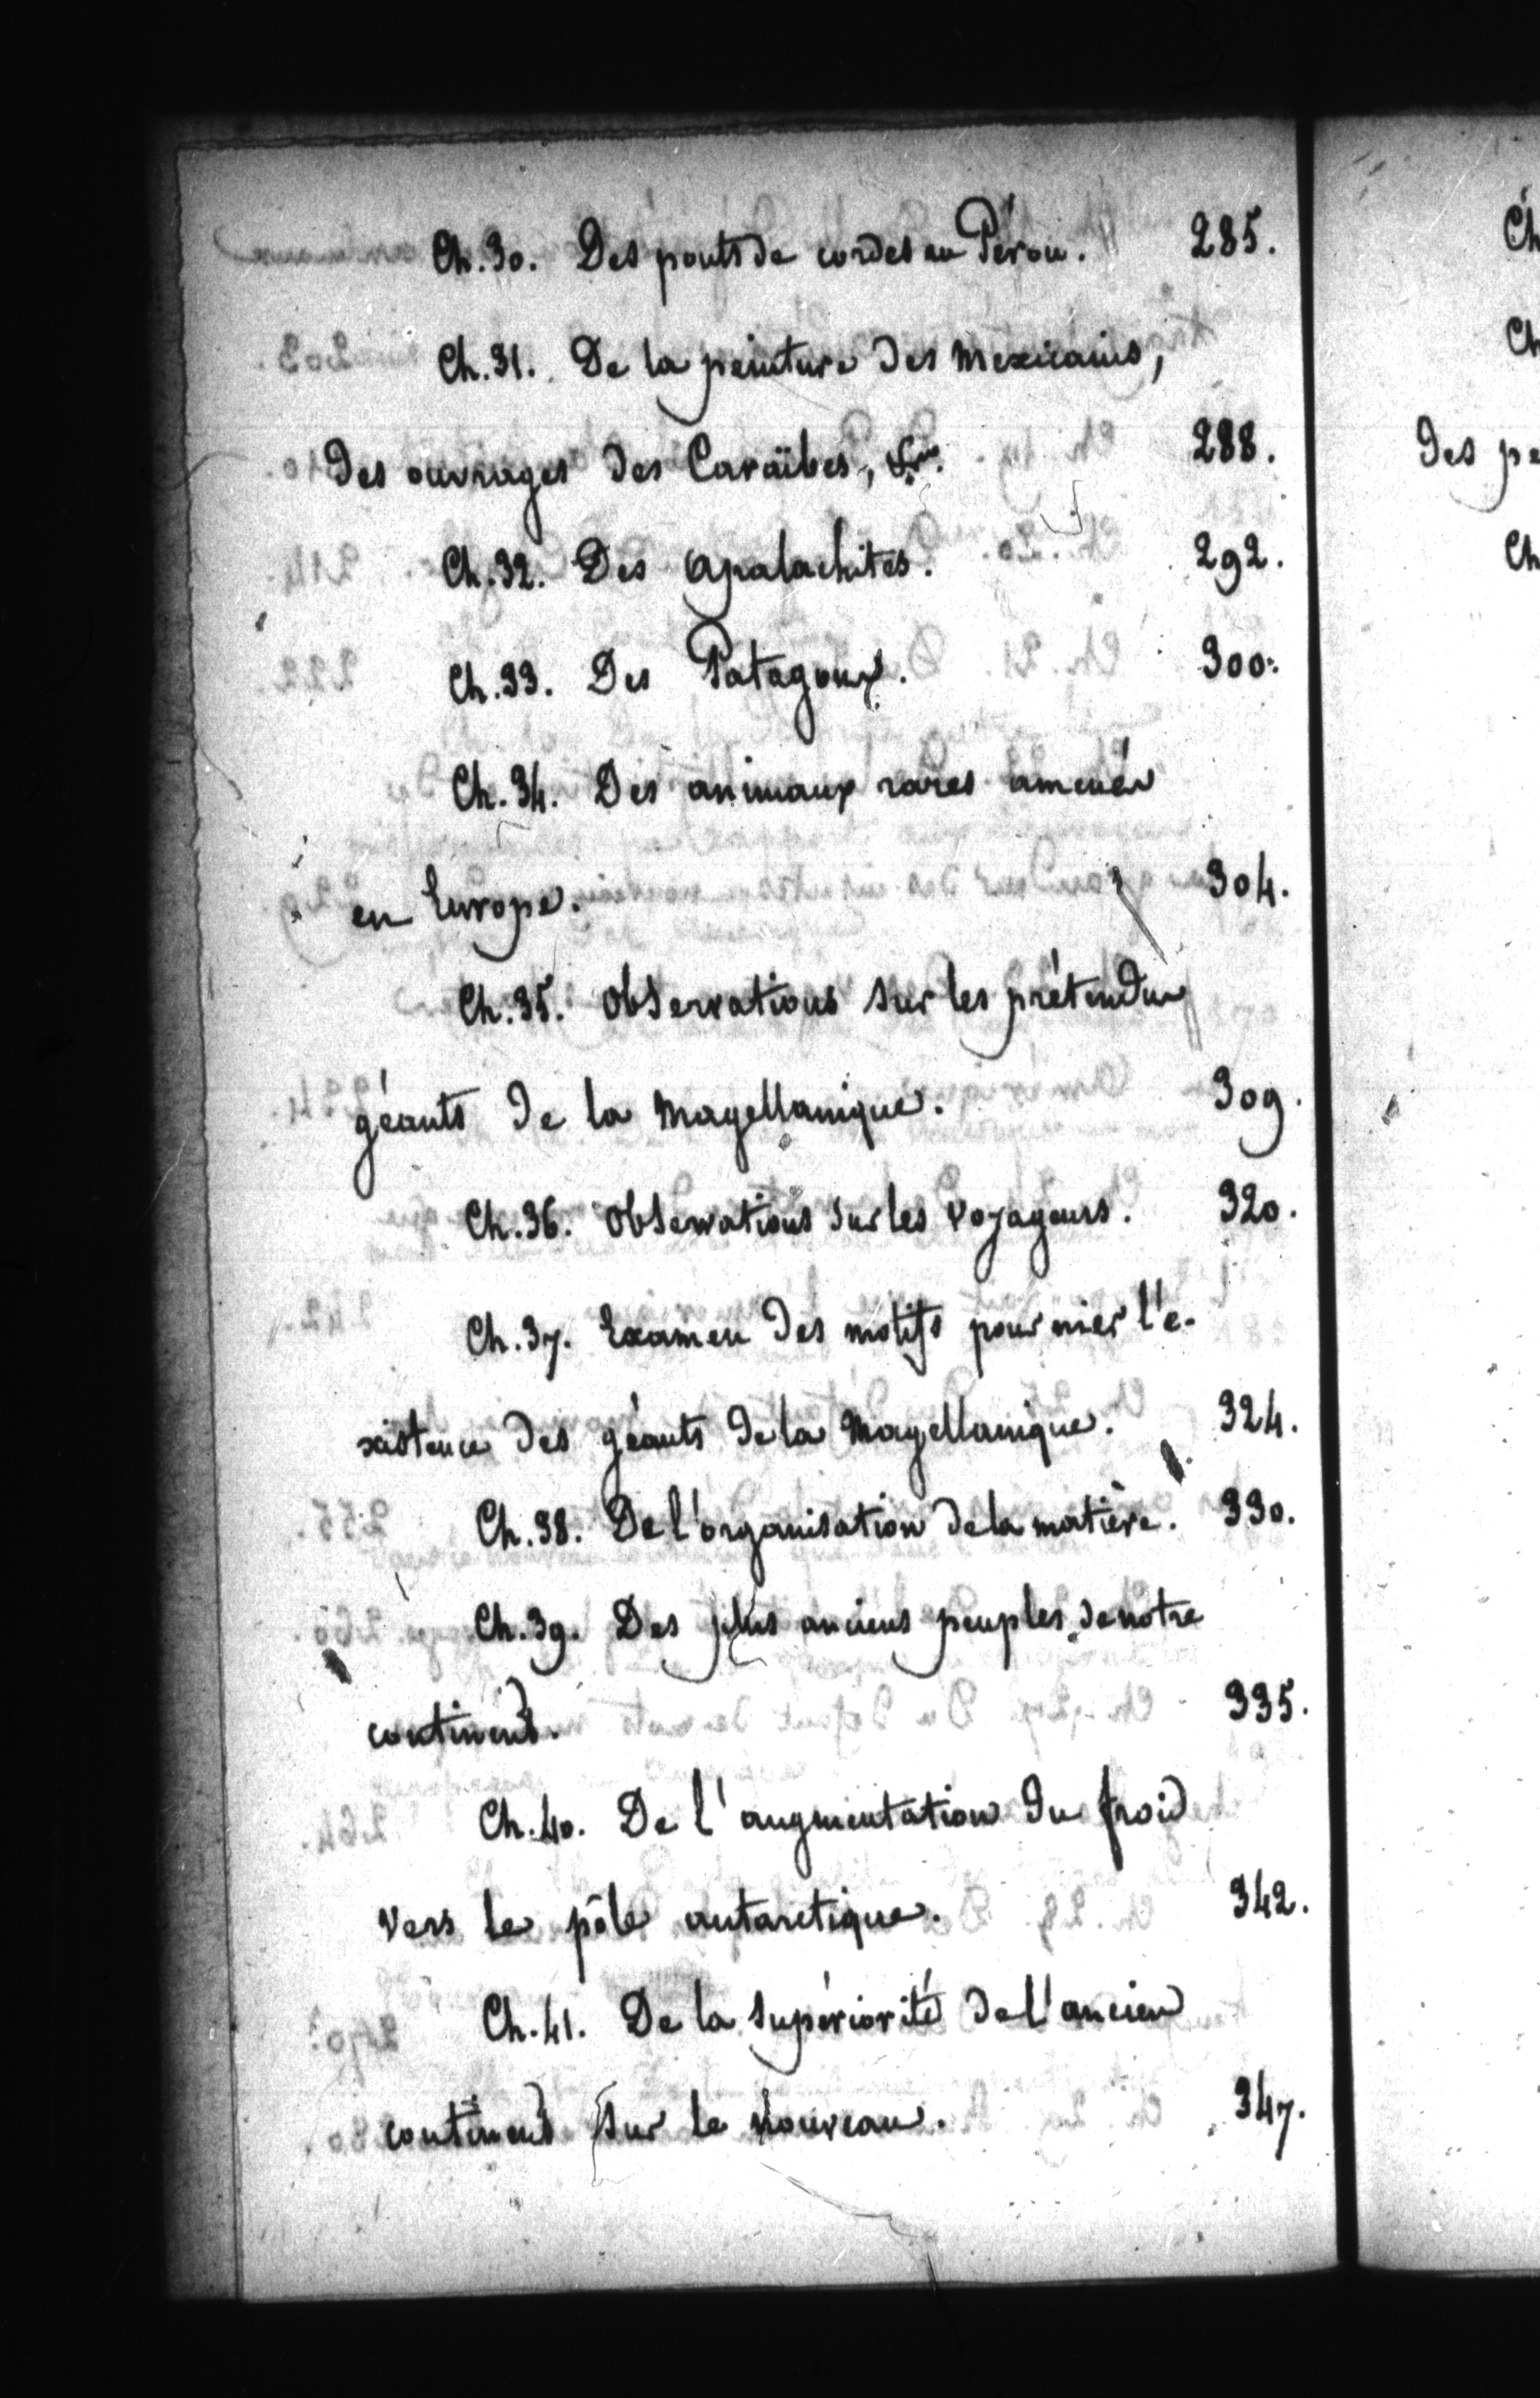 Ch. 30. Des ponts de cordes au Pérou. 285.
Ch. 31. De la peinture des Mexicains,
des ouvrages des Caraïbes, &c. 288.
Ch. 32. Des Apalachites. 292.
Ch. 33. Des Patagons. 300.
Ch. 34. Des animaux rares amenés
en Europe. 304.
Ch. 35. Observations sur les prétendus
géants de la Magellanique. 309.
Ch. 36. Observations sur les voyageurs. 320.
Ch. 37. Examen des motifs pour nier l'e-
xistence des géants de la Magellanique. 324.
Ch. 38. De l'organisation de la matière. 330.
Ch. 39. Des plus anciens peuples de notre
continent. 335.
Ch. 40. De l'augmentation du froid
vers le pôle antarctique. 342.
Ch. 41. De la supériorité de l'ancien
continent sur le nouveau. 347.
Ch
Ch
des pe
Ch